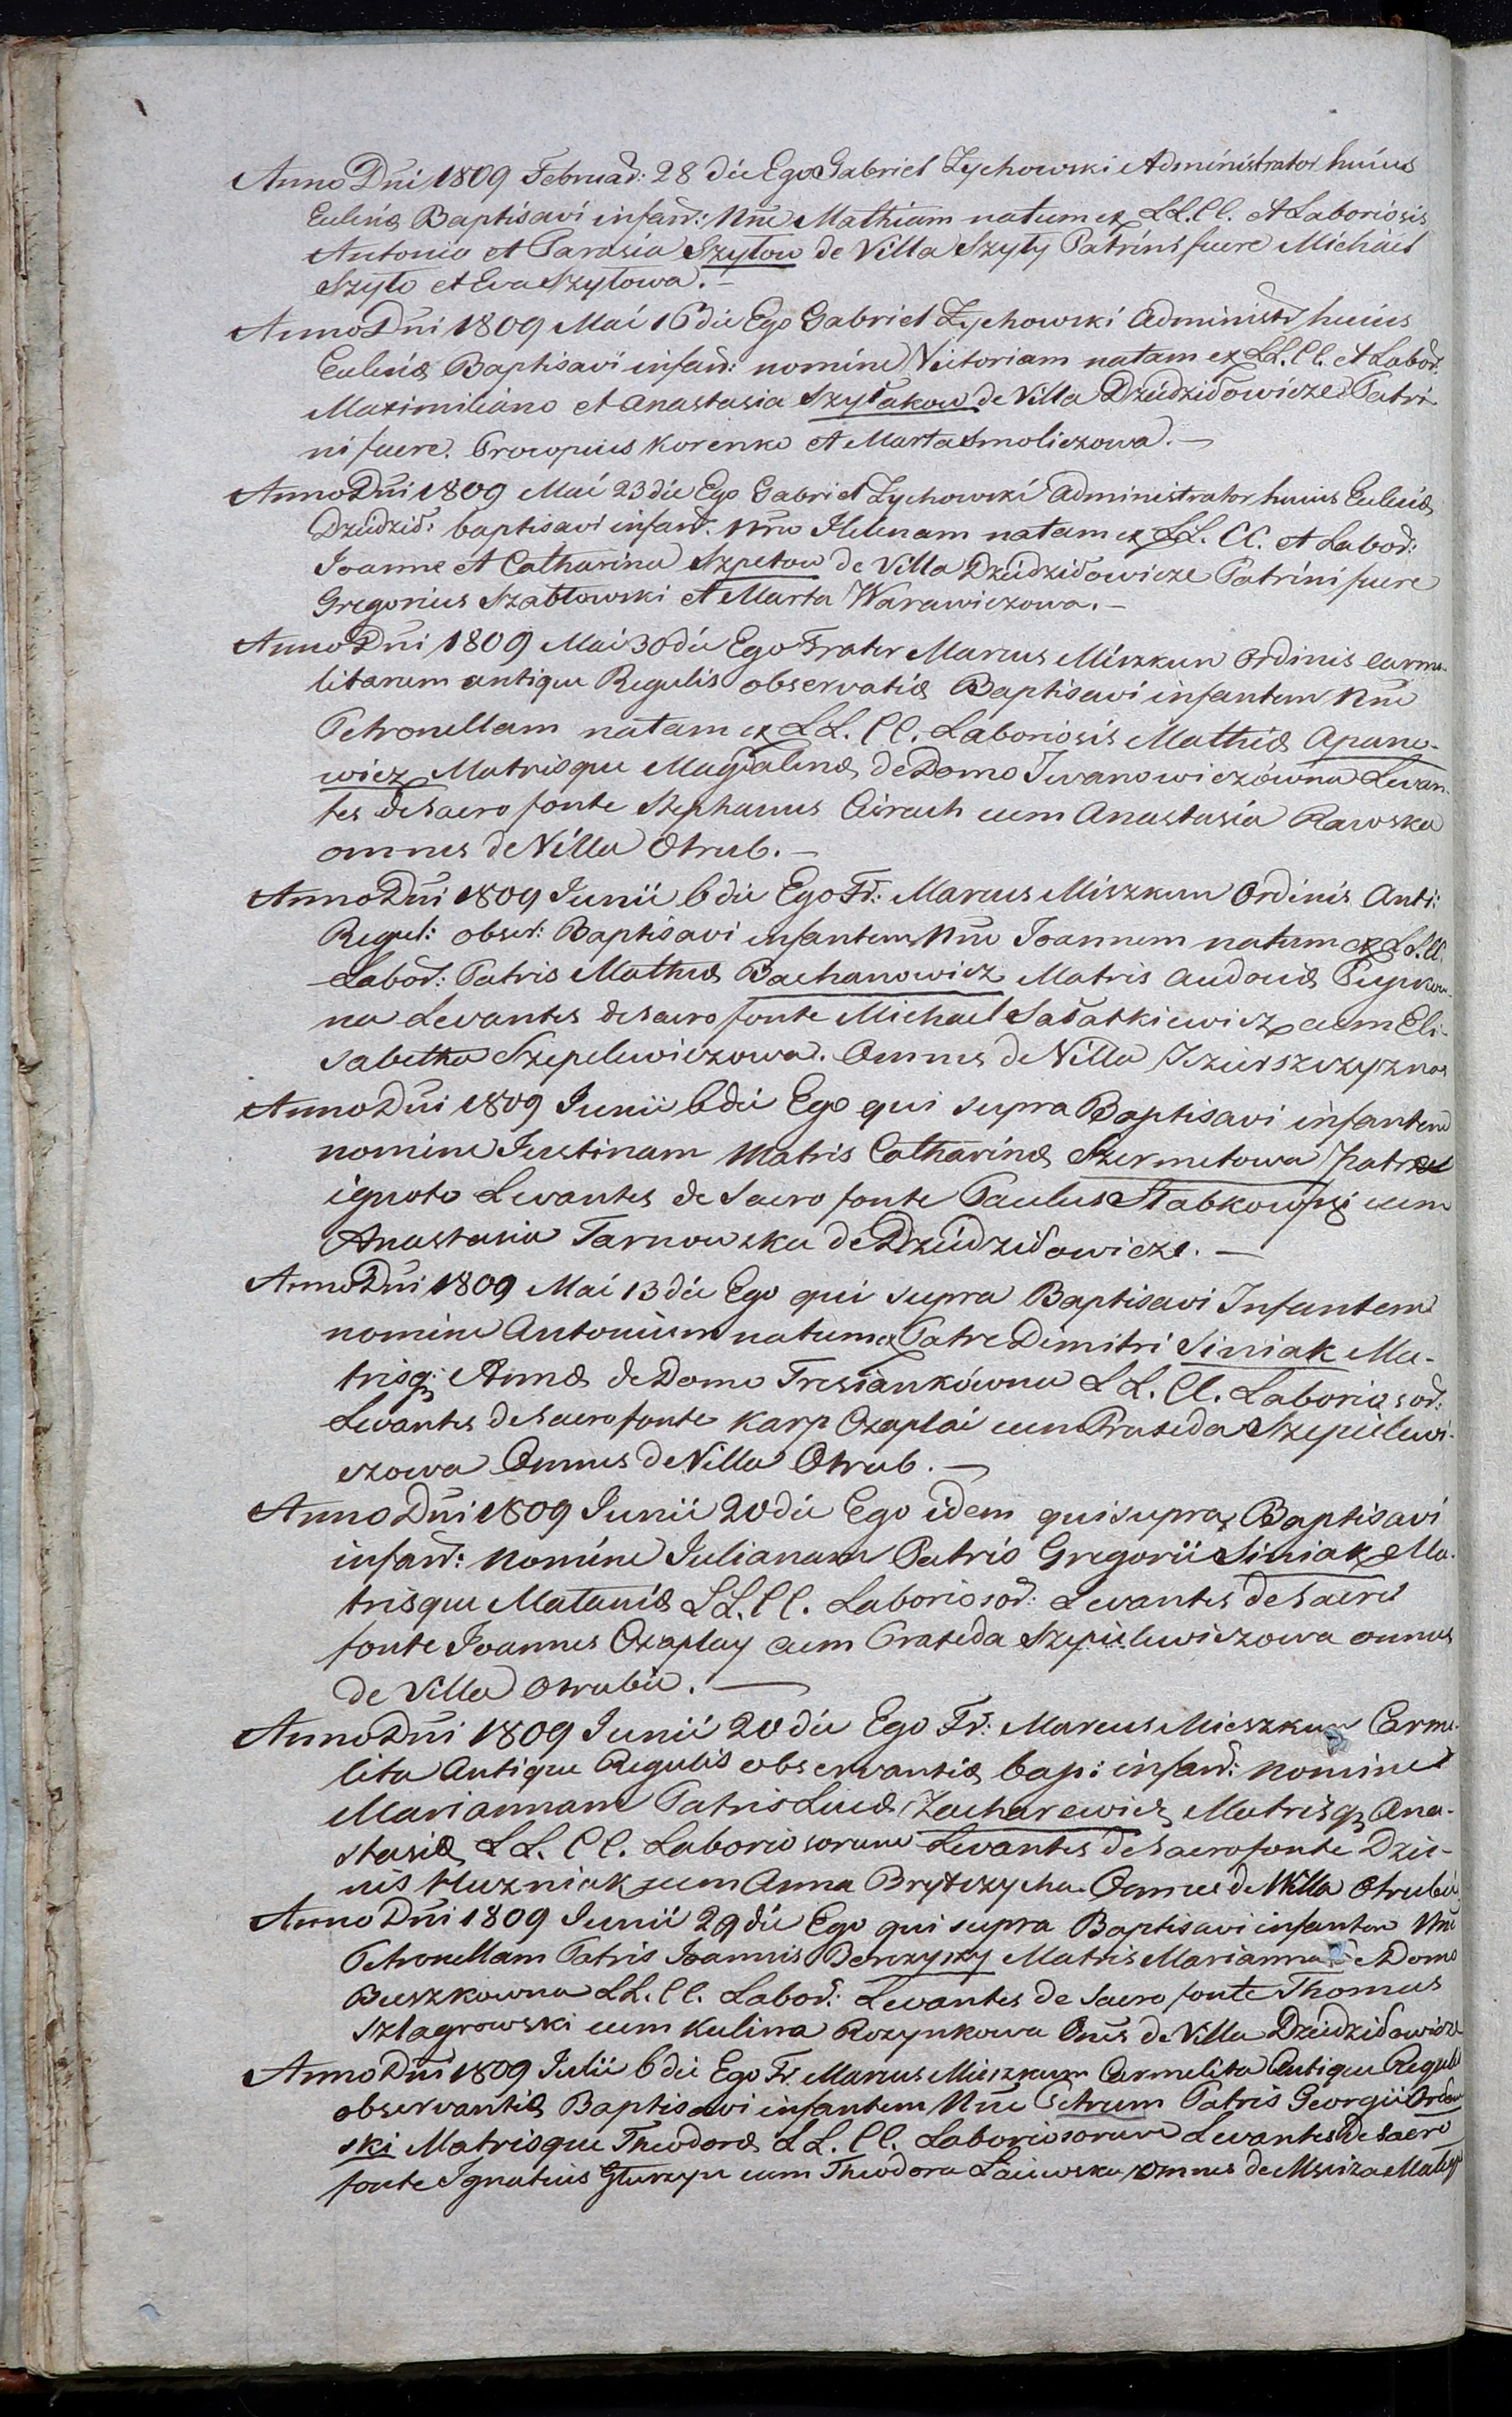 Anno Dni 1809 Februar: 28 die Ego Gabriel Zychowski Administrator huius
Eccliæ Baptisavi infan: Nne Mathiam natum ex LL.CC. et Laboriosis
Antonio et Parasia Szytow de Villa Szyty Patrini fuere Michael
Szyto et Eva Szytowa.—
Anno Dni 1809 Mai 16 die Ego Gabriel Zychowski Administr huius
Eccliæ Baptisavi infan: nomine Victoriam natam ex LL.CC. et Labor.
Maximiliano et Anastasia Szyłakow de Villa Dziedziłowicze Patri
ni fuere. Procopius Korenko et Marta Smoliczowa.—
Anno Dni 1809 Mai 23 die Ego Gabriel Zychowski Administrator huius Eccliæ
Dziedził: baptisavi infan. Nne Helenam natam ex LL. CC. et Labor:
Joanne et Catharina Szpetow de Villa Dziedziłowicze Patrini fuere
Gregorius Szabłowski et Marta Warawiczowa.—
Anno Dni 1809 Mai 30 die Ego Frater Marcus Miszkun Ordinis Carme-
litarum antique Regulis observatiæ Baptisavi infantem Nne
Petronellam natam ex LL. CC. Laboriosis Mathiæ Apano-
wicz Matrisque Magdalenæ de Domo Iwanowiczówna Levan-
tes de Sacro fonte Stephanus Cierach cum Anastasia Rawska
omnes de Villa Otrub.—
Anno Dni 1809 Junii 6 die Ego Fr: Marcus Miszkun Ordinis Anti:
Regul: obser: Baptisavi infantem Nne Joannem natum ex LL.CC.
Labor: Patris Mathiæ Bachanowicz Matris Audociæ
na Levantes de sacro fonte Michael Sałatkiewicz cum Eli-
sabetha Szepelewiczowa. Omnes de Villa
Anno Dni 1809 Junii 6 die Ego qui supra Baptisavi infantem
nomine Justinam Matris Catharinæ Szermetowa Patre
ignoto Levantes de Sacro fonte Paulus Słabkowski cum
Anastasia Tarnowska de Dziedziłowicze.—
Anno Dni 1809 Mai 13 die Ego qui supra Baptisavi Infantem
nomine Antonium natum ex Patre Dimitri Siniak Ma-
trisq; Annæ de Domo Tresiankówna LL. CC. Laboriosor:
Levantes de Sacro fonte Karp Czaplai cum Praxeda Szepielewi-
czowa Omnes de Villa Otrub.—
Anno Dni 1809 Junii 20 die Ego idem qui supra Baptisavi
infan: nomine Julianam Patris Gregorii Siniak Ma-
trisque Mataniæ LL. CC. Laboriosor: Levantes de Sacro
fonte Joannes Czaplay cum Praxeda Szepielewiczowa omnes
de Villa Otrubie.—
Anno Dni 1809 Junii 20 die Ego Fr: Marcus Mieszkun Carme-
lita Antique Regulis observantiæ bap: infan: nomine
Mariannam Patris Lucæ Zacharewicz Matrisq; Ana-
stasiæ LL. CC. Laboriosorum Levantes de Sacro fonte Dzie-
nis Huzniak cum Anna Omnes de Villa Otrubie
Anno Dni 1809 Junii 29 die Ego qui supra Baptisavi infantem Nne
Petronellam Patris Joannis Matris Mariannæ de Domo
Buszkowna LL. CC. Labor: Levantes de Sacro fonte Thomas
Szlagrowski cum Kulina Rozynkowa Ones de Villa Dziedziłowicze
Anno Dni 1809 Julii 6 die Ego Fr. Marcus Mieszkun Carmelita Antique Regulis
observantiæ Baptisavi infantem Nne Petrum Patris Georgii
ski Matrisque Theodoræ LL. CC. Laboriosorum Levantes de Sacro
fonte Ignatius cum Theodora omnes de